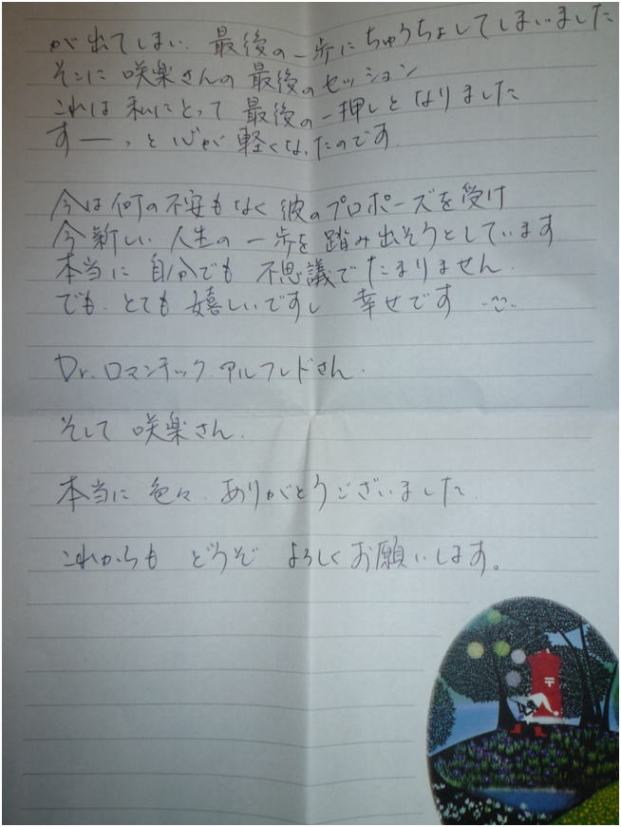 が出てしまい 最後の一歩にちゅうちょしてしまいました
そこに 咲楽さんの 最後のセッション
これは 私にとって 最後の一押しと なりました
すーっと 心が 軽くなったのです
今は何の不安もなく 彼のプロポーズを受け
今新しい 人生の 一歩を 踏み出そうとしています
本当に 自分でも 不思議でたまりません
でも とても 嬉しいですし 幸せです
Dr.ロマンチック アルフレドさん
そして 咲楽さん
本当に 色々 ありがとうございました
これからも どうぞ よろしくお願いします。